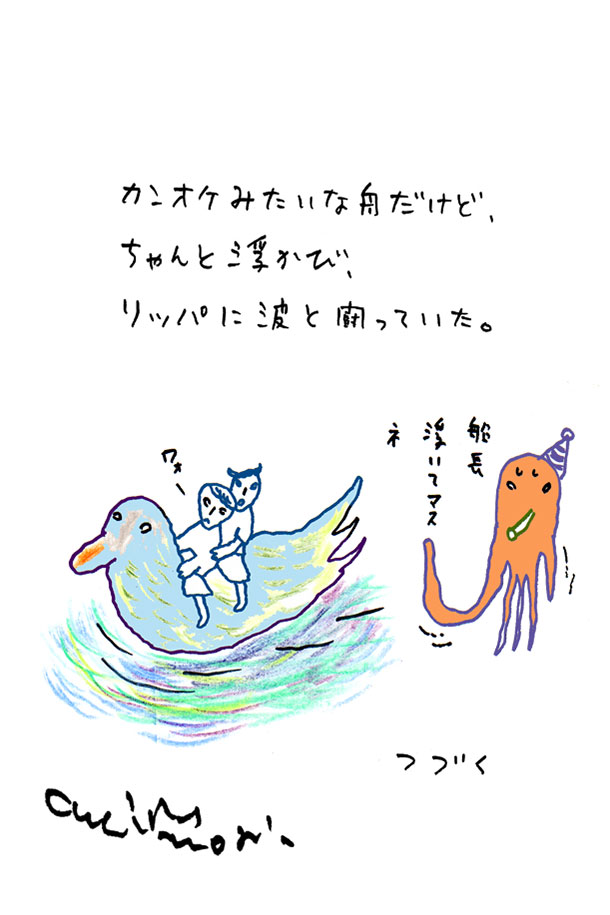 カンオケみたいな舟だけど、
ちゃんと浮かび、
リッパに波と闘っていた。
船長
浮いてマス
ネ
ワォー
つづく